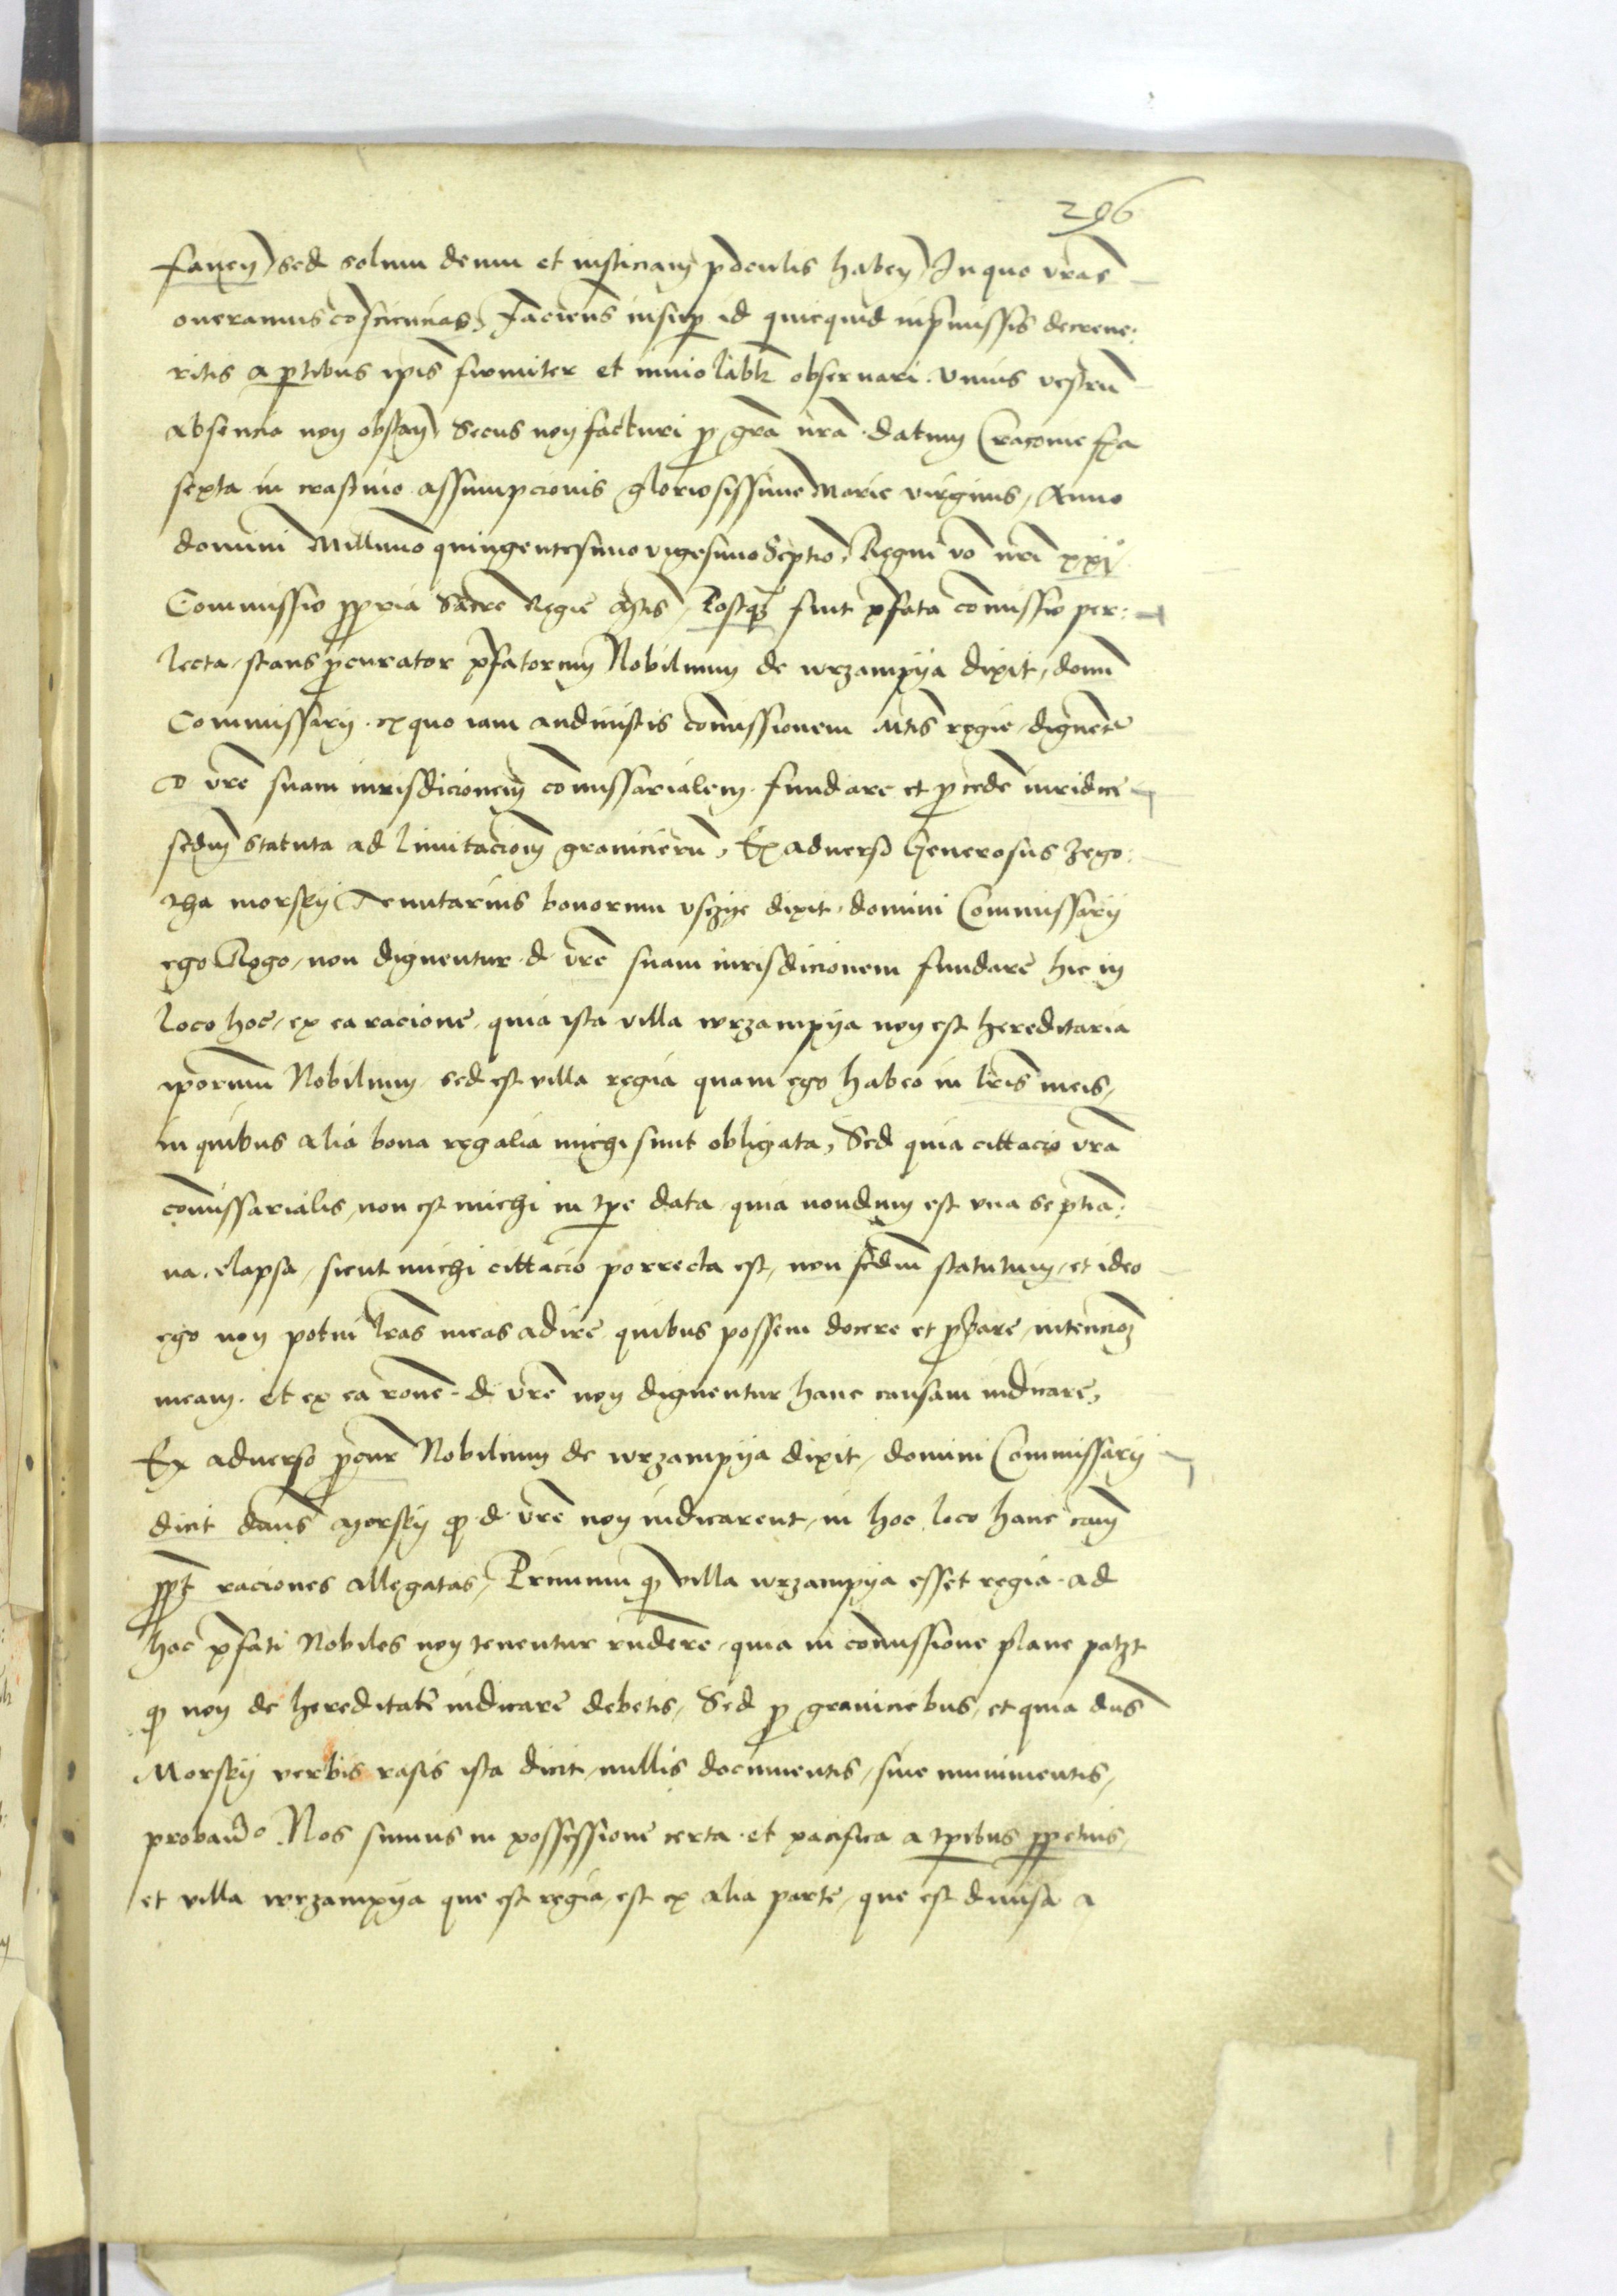 296
faven) sed solum deum et iusticiam p oculis haben) In quo vras
oneramus cosciencias, Faciens insup id quicquid inpmissis decreue:
ritis a ptibus ipis firmiter et inuiolabltr obseruari. Vnius vestru
absencia non obstan) Secus non facturi p gra nra. datum Cracouie fra
sexta in crastino assumpcionis gloriosissime Marie virginis, Anno
domini Millimo quingentesimo vigesimo Septio, Regni vo nri xxj°
Commissio ppria Sacre Regie Mtis, Postq fuit pfata comissio per:
lecta, stans pcurator pfatorum Nobilium de wrzampija dixit, domi
Commissarij. ex quo iam audiuistis comissionem Mtis regie, dignet
D vre suam iurisdicionem comissarialem. fundare et pcede iuridice
scdm statuta ad limitacionem granicieru, Ex aduerso Generosus Zego:
tha morskij Tenutarius bonorum vsczije dixit, domini Commissarij
ego Rogo, non dignentur d vre suam iurisdicionem fundare hic in
loco hoc, ex ea racione, quia ista villa wrzampija non est hereditaria
iporum Nobilium, sed est villa regia quam ego habeo in lris meis,
in quibus alia bona regalia michi sunt obligata, Sed quia cittacio vra
comissarialis, non est michi in tpe data, quia nondum est vna septia:
na, elapsa, sicut michi cittacio porrecta est, non scdm statutum, et ideo
ego non potui lras meas adire, quibus possem docere et pbare, intencioe
meam. et ex ea rone. d vre non dignentur hanc causam iudicare,
Ex aduerso pcur Nobilium de wrzampija dixit, domini Commissarij
dicit dnus Morskij q d vre non iudicarent, in hoc loco hanc cam
ppt raciones allegatas, Primum q villa wrzampija esset regia. ad
hoc pfati Nobiles non tenentur rndere, quia in comissione plane patzt
q non de hereditate iudicare debetis, Sed p graniciebus, et quia dus
Morskij verbis rasis ista dicit, nullis documentis, siue munimentis,
proband° Nos sumus in possessione certa et pacifica a tpibus ppetuis,
et villa wrzampija que est regia, est ex alia parte, que est diuisa a